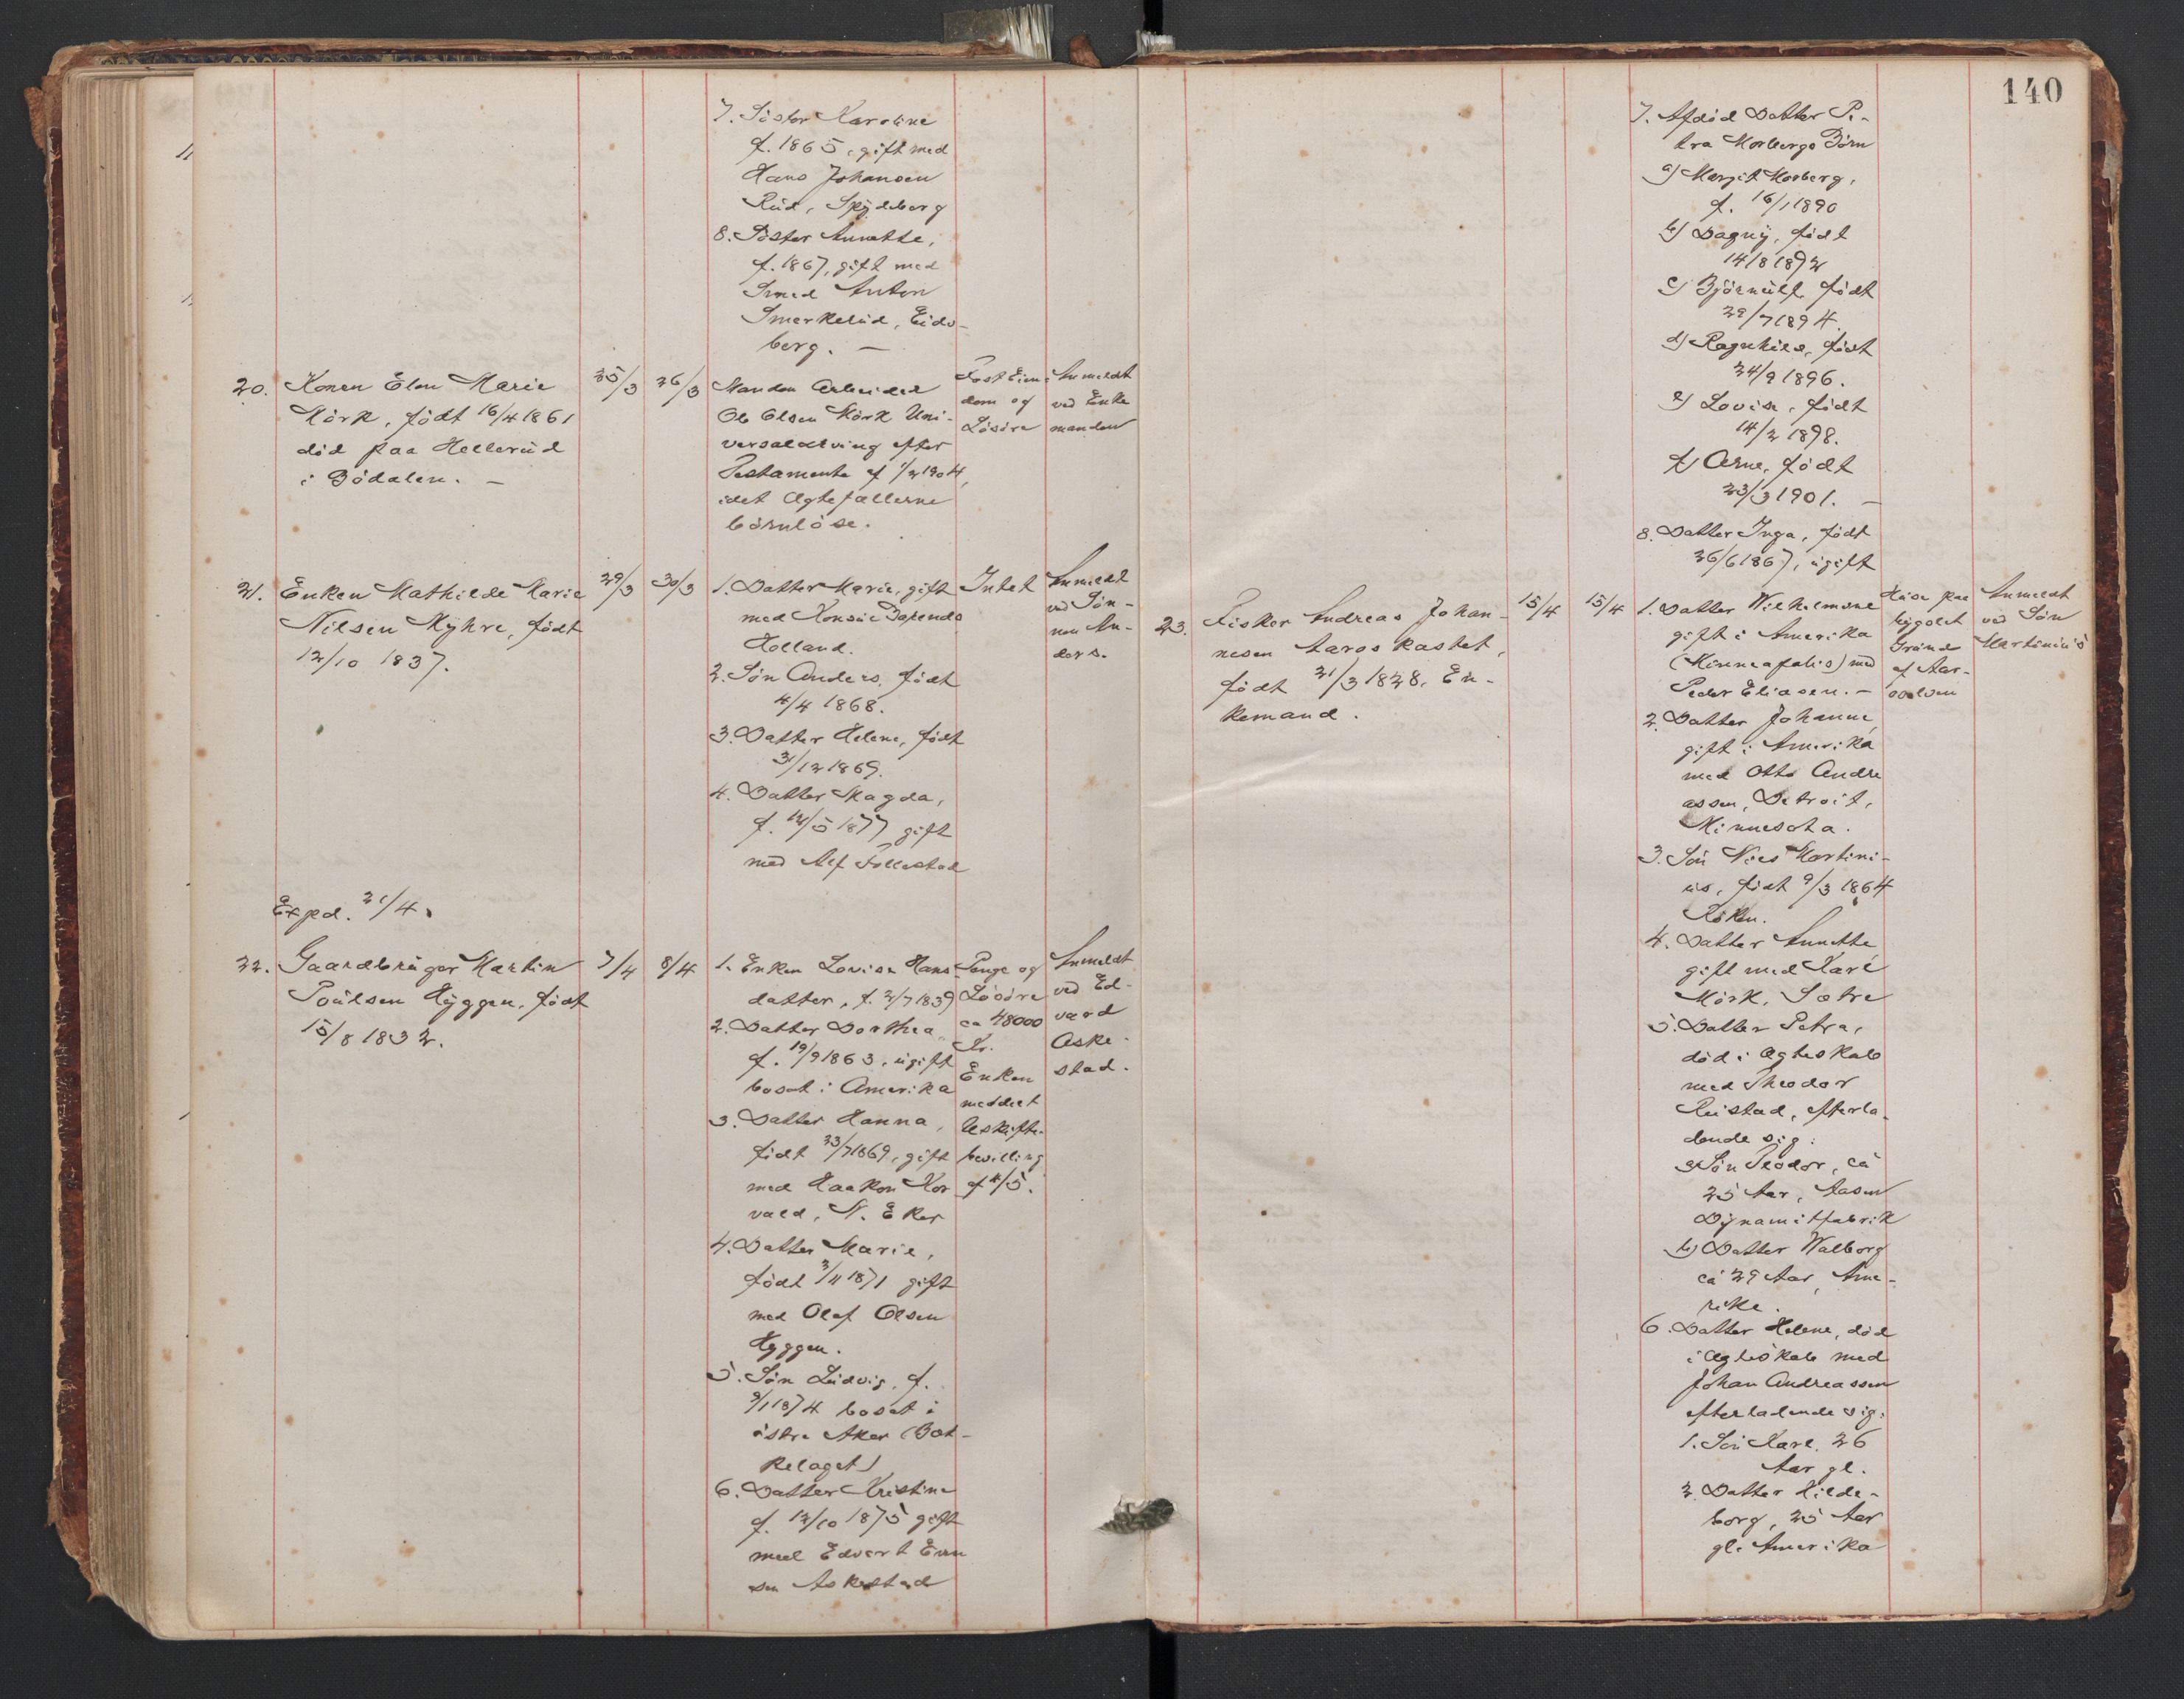 7. Söster Karoline
f. 1865, gift med
Hans Johansen
Rud, Spydeberg
8. Söster Annette,
f. 1867, gift med
Smed Anton
Smerkerud, Eids-
berg. —
20. Konen Elen Marie
Mörk, født 16/4 1861
död paa Hellerud
i Bödalen. —
25/3 26/3
Manden Arbeider
Ole Olsen Mörk Uni-
versalarving efter
Testamente af 1/2 1904,
idet Ægtefællerne
barnlöse.
Fast Eien-
dom og
Lösöre
Anmeldt
ved Enke
manden
21. Enken Mathilde Marie
Nilsen Myhre, født
12/10 1837.
29/3 30/3
1. Datter Marie, gift
med Konsul Barends
Holland.
2. Sön Anders, födt
4/4 1868.
3. Datter Helene, födt
31/12 1869.
4. Datter Magda,
f. 12/5 1877 gift
med Alf Follestad
Intet
Anmeldt
ved Sön-
nen An-
ders.
Exped. 21/4.
22. Gaardbruger Martin
Poulsen Hyggen, födt
15/8 1832.
7/4 8/4
1. Enken Lovise Hans-
datter, f. 2/7 1839
2. Datter Dorthea
f. 19/9 1863, ugift
bosat i Amerika
3. Datter Hanna,
födt 23/7 1869, gift
med Haakon Kor
vald, N. Eker
4. Datter Marie,
födt 3/11 1871 gift
med Olaf Olsen
Hyggen.
5. Sön Ludvig, f.
9/1 1874 bosat i
östre Aker (Bæk-
kelaget)
6. Datter Kristine
f. 12/10 1875 gift
med Edvart Even
sen Askestad
Penge og
Lösöre
ca 48000
Kr.
Enken
meddelt
Uskifte-
bevilling
af 4/5.
Anmeldt
ved Ed-
vard
Aske-
stad.
140
7. Afdöd Datter Pe-
tra Morbergs Börn
a) Margit Morberg,
f. 16/1 1890
b) Dagny, födt
14/8 1892
c) Björnulf, födt
29/7 1894.
d) Ragnhild, födt
24/9 1896.
e) Lovise, födt
14/2 1898.
f) Arne, födt
23/3 1901. —
8. Datter Inga, födt
26/6 1867, ugift
23. Fisker Andreas Johan-
nesen Aaroskastet,
födt 21/3 1828. En-
kemand.
15/4 15/4
1. Datter Wilhelmine
gift i Amerika
(Minneapolis) med
Peder Eliasen. —
2. Datter Johanne,
gift i Amerika
med Otto Andre
assen, Detroit,
Minnesota.
3. Sön Nils Martini-
us, födt 9/3 1864
Röken.
4. Datter Annette
gift med Karl
Mörk, Sætre
5. Datter Petra,
död i Ægteskab
med Theodor
Rustad, efterla-
dende sig:
a) Sön Teodor, ca
25 Aar, Aasen
Dynamitfabrik
b) Datter Walborg
ca 29 Aar, Ame-
rika.
6. Datter Helene, död
i Ægteskab med
Johan Andreassen
efterladende sig:
1. Sön Karl. 26
Aar gl.
2. Datter Hilde-
borg, 25 Aar
gl. Amerika
Huse paa
bygslet
Grund
af Aar-
oselven
Anmeldt
ved Sön
Martinius